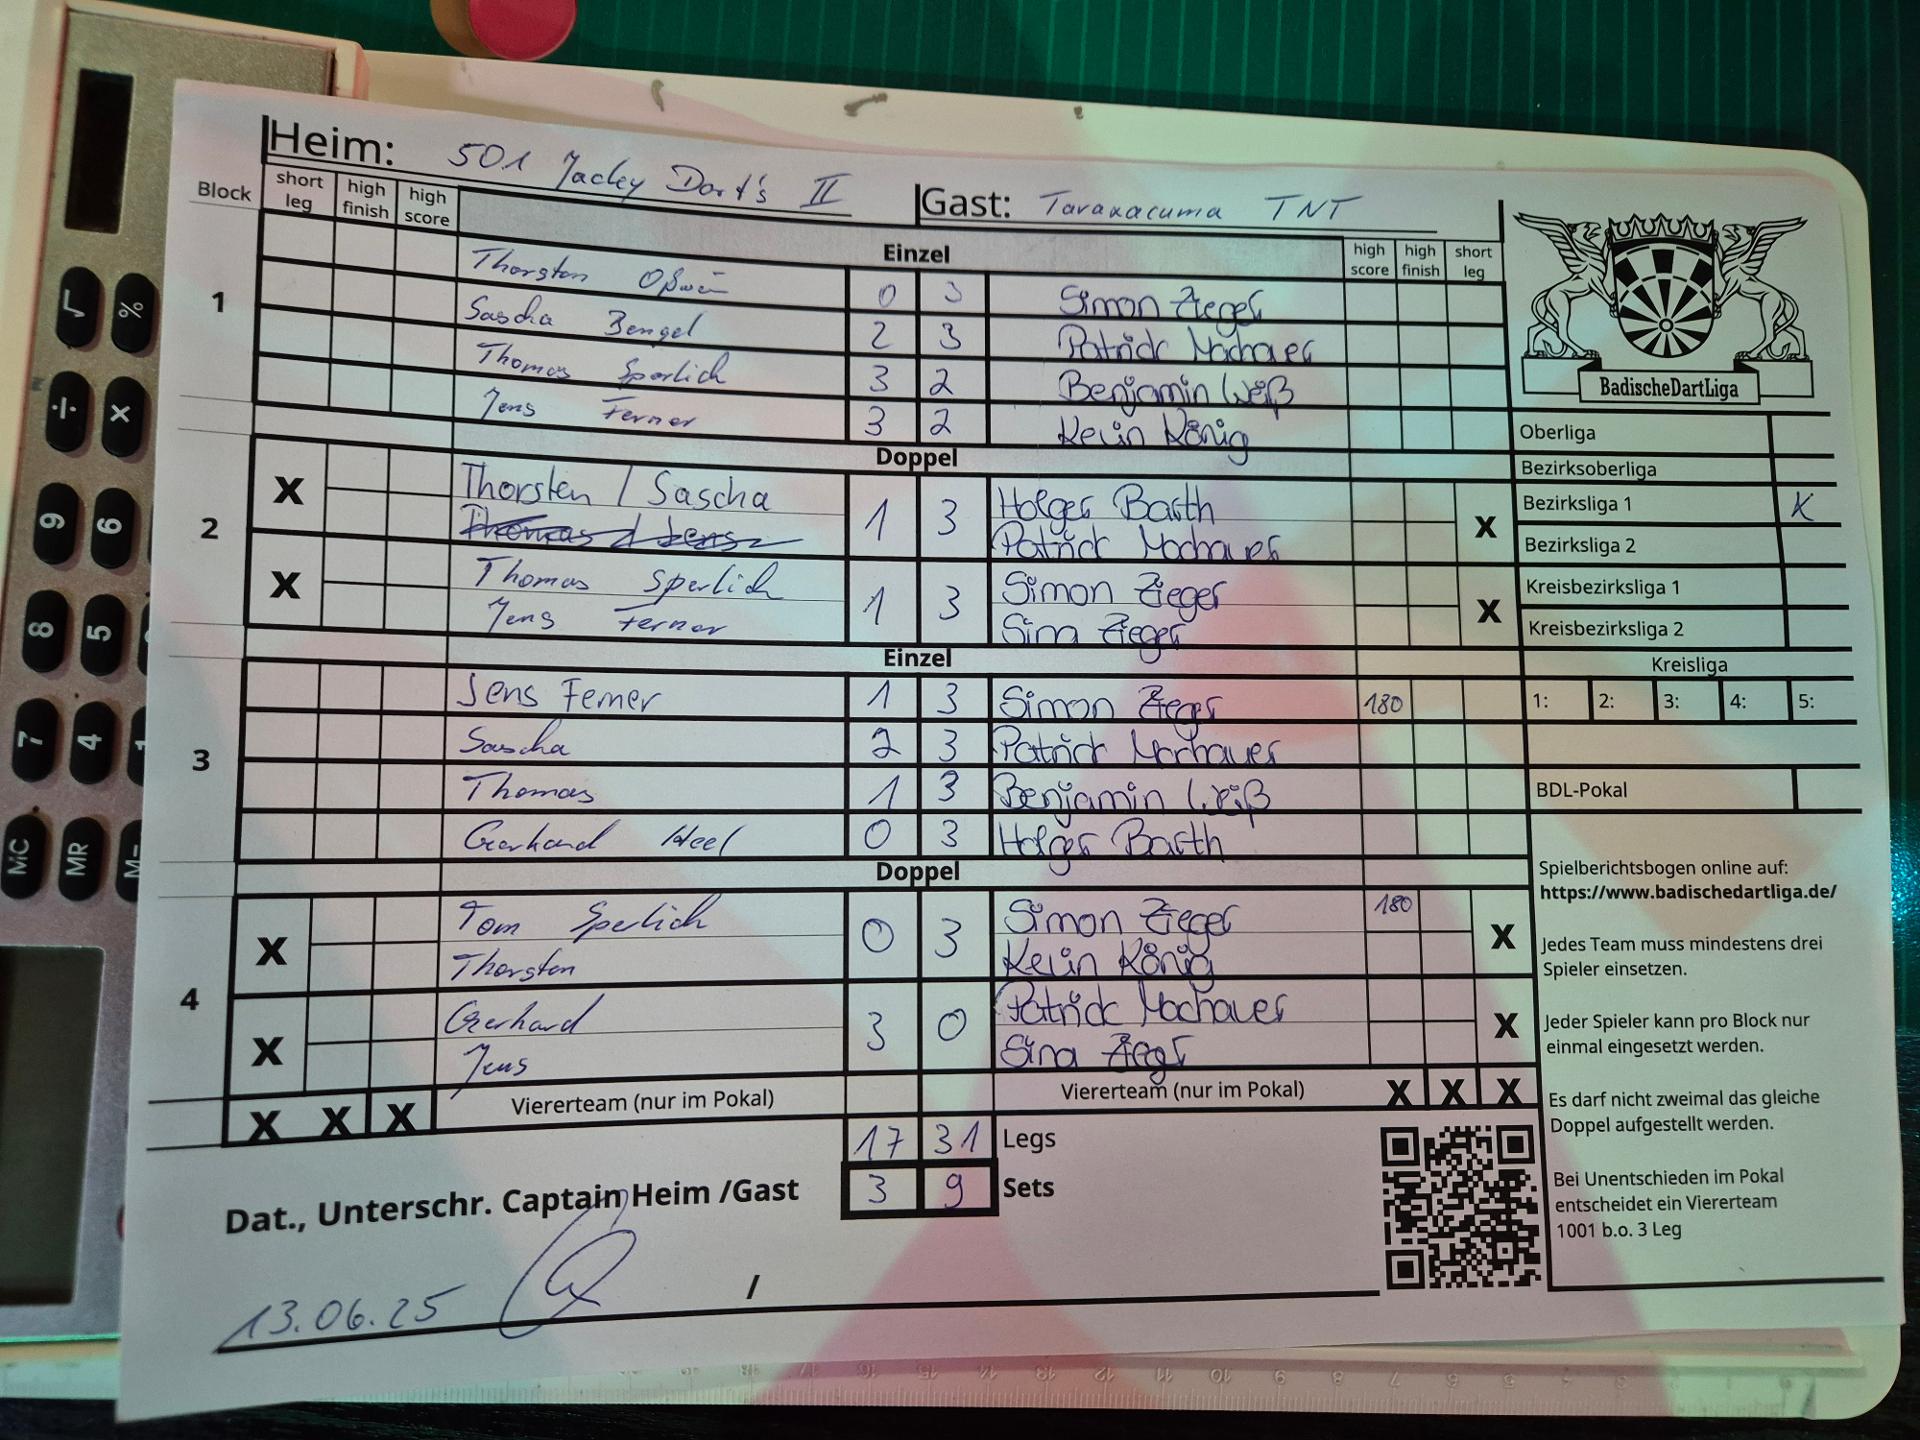 Heim: 501 Jacky Dart's II
Gast: Taraxacuma TNT
Block short leg high finish high score
Einzel
high score high finish short leg
1
Thorsten 0 3 Simon Zieger
Sascha Bengel 2 3 Patrick Machauer
Thomas Sperlich 3 2 Benjamin Weiß
Jens Ferner 3 2 Kevin König
Doppel
2
X Thorsten / Sascha 1 3 Holger Barth X
Thomas / Jens Patrick Machauer
X Thomas Sperlich 1 3 Simon Zieger X
Jens Ferner Sina Zieger
Einzel
3
Jens Ferner 1 3 Simon Zieger 180
Sascha 2 3 Patrick Machauer
Thomas 1 3 Benjamin Weiß
Gerhard Heel 0 3 Holger Barth
Doppel
4
X Tom Sperlich 0 3 Simon Zieger 180 X
Thorsten Kevin König
X Gerhard 3 0 Patrick Machauer X
Jens Sina Zieger
X X X Viererteam (nur im Pokal) Viererteam (nur im Pokal) X X X
17 31 Legs
3 9 Sets
Dat., Unterschr. Captain Heim /Gast
13.06.25 /
BadischeDartLiga
Oberliga
Bezirksoberliga
Bezirksliga 1 X
Bezirksliga 2
Kreisbezirksliga 1
Kreisbezirksliga 2
Kreisliga
1: 2: 3: 4: 5:
BDL-Pokal
Spielberichtsbogen online auf:
https://www.badischedartliga.de/
Jedes Team muss mindestens drei
Spieler einsetzen.
Jeder Spieler kann pro Block nur
einmal eingesetzt werden.
Es darf nicht zweimal das gleiche
Doppel aufgestellt werden.
Bei Unentschieden im Pokal
entscheidet ein Viererteam
1001 b.o. 3 Leg
√ %
÷ ×
9 6
8 5
7 4 1
MC MR M−
17 16 15 14 13 12 11 10 9 8 7 6 5